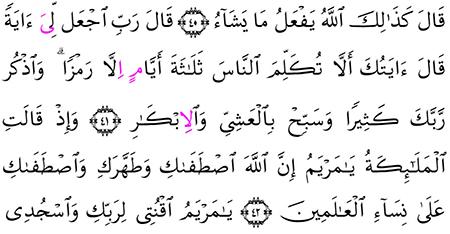 قَالَ كَذَٰلِكَ ٱللَّهُ يَفْعَلُ مَا يَشَآءُ ﴿٤٠﴾ قَالَ رَبِّ ٱجْعَل لِّىٓ ءَايَةً
قَالَ ءَايَتُكَ أَلَّا تُكَلِّمَ ٱلنَّاسَ ثَلَٰثَةَ أَيَّامٍ إِلَّا رَمْزًا ۗ وَٱذْكُر
رَّبَّكَ كَثِيرًا وَسَبِّحْ بِٱلْعَشِىِّ وَٱلْإِبْكَٰرِ ﴿٤١﴾ وَإِذْ قَالَتِ
ٱلْمَلَٰٓئِكَةُ يَٰمَرْيَمُ إِنَّ ٱللَّهَ ٱصْطَفَىٰكِ وَطَهَّرَكِ وَٱصْطَفَىٰكِ
عَلَىٰ نِسَآءِ ٱلْعَٰلَمِينَ ﴿٤٢﴾ يَٰمَرْيَمُ ٱقْنُتِى لِرَبِّكِ وَٱسْجُدِى